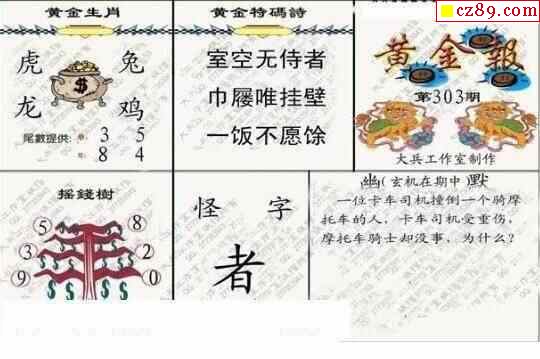 cz89.com
黄金生肖
虎
兔
龙
鸡
尾數提供:
單:
3 5
8 4
黄金特碼詩
室空无侍者
巾屦唯挂壁
一饭不愿馀
黄金報
第303期
大兵工作室制作
摇錢樹
5
8
3
2
9
0
怪 字
者
幽(玄机在期中)默
一位卡车司机撞倒一个骑摩
托车的人，卡车司机受重伤，
摩托车骑士却没事，为什么？